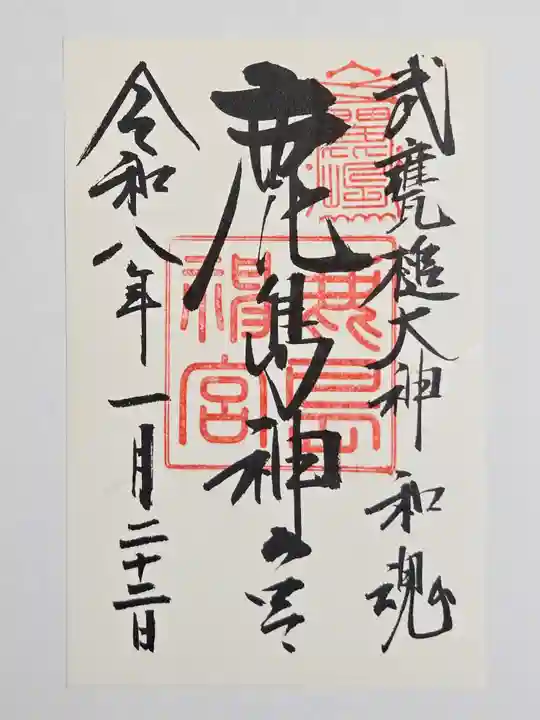 武甕槌大神 和魂
鹿島神の宮
鹿島
神宮
令和八年一月二十三日